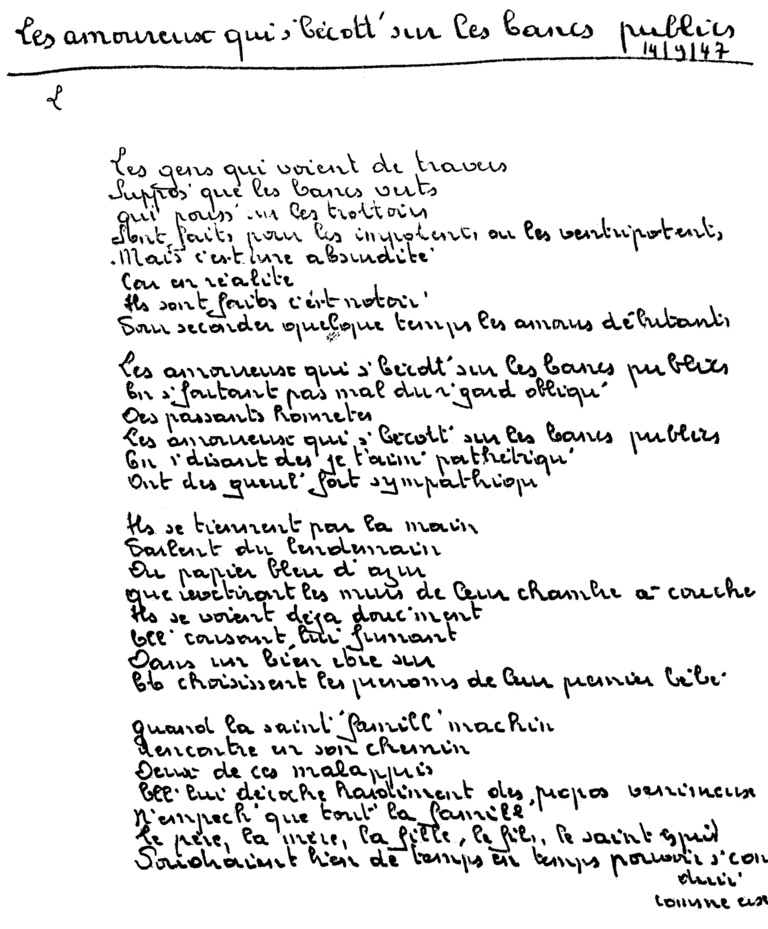 Les amoureux qui s'bécott' sur les bancs publics
14/9/47
L
Les gens qui voient de travers
Suppos' que les bancs verts
qui pouss' sur les trottoirs
Sont faits pour les impotents ou les ventripotents,
Mais c'est une absurdité
Car en réalité
Ils sont faits c'est notoir'
Pour seconder quelque temps les amours débutants
Les amoureux qui s'bécott' sur les bancs publics
En s'foutant pas mal du r'gard obliqu'
Des passants honnetes
Les amoureux qui s'bécott' sur les bancs publics
En s'disant des je t'aim' pathétiqu'
Ont des gueul' fort sympathiqu'
Ils se tiennent par la main
Parlent du lendemain
Du papier bleu d'azur
que revetiront les murs de leur chambre à coucher
Ils se voient deja douc'ment
Ell' cousant, lui fumant
Dans un bien etre sur
Et choisissent les prenoms de leur premier bébé
quand la saint' famill' machin
Rencontre en son chemin
Deux de ces malappris
Ell' lui décoche hardiment des propos venimeux
N'empech' que tout' la famille
Le père, la mère, la fille, le fils, le saint esprit
Souhaient bien de temps en temps pouvoir s'con
duir'
comme eux